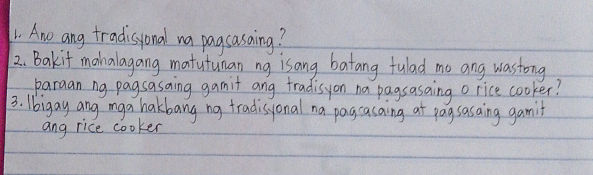 1. Ano ang tradisyonal na pagsasaing?
2. Bakit mahalagang matutunan ng isang batang tulad mo ang wastong
paraan ng pagsasaing gamit ang tradisyon na pagsasaing o rice cooker?
3. Ibigay ang mga hakbang ng tradisyonal na pagsasaing at pagsasaing gamit
ang rice cooker